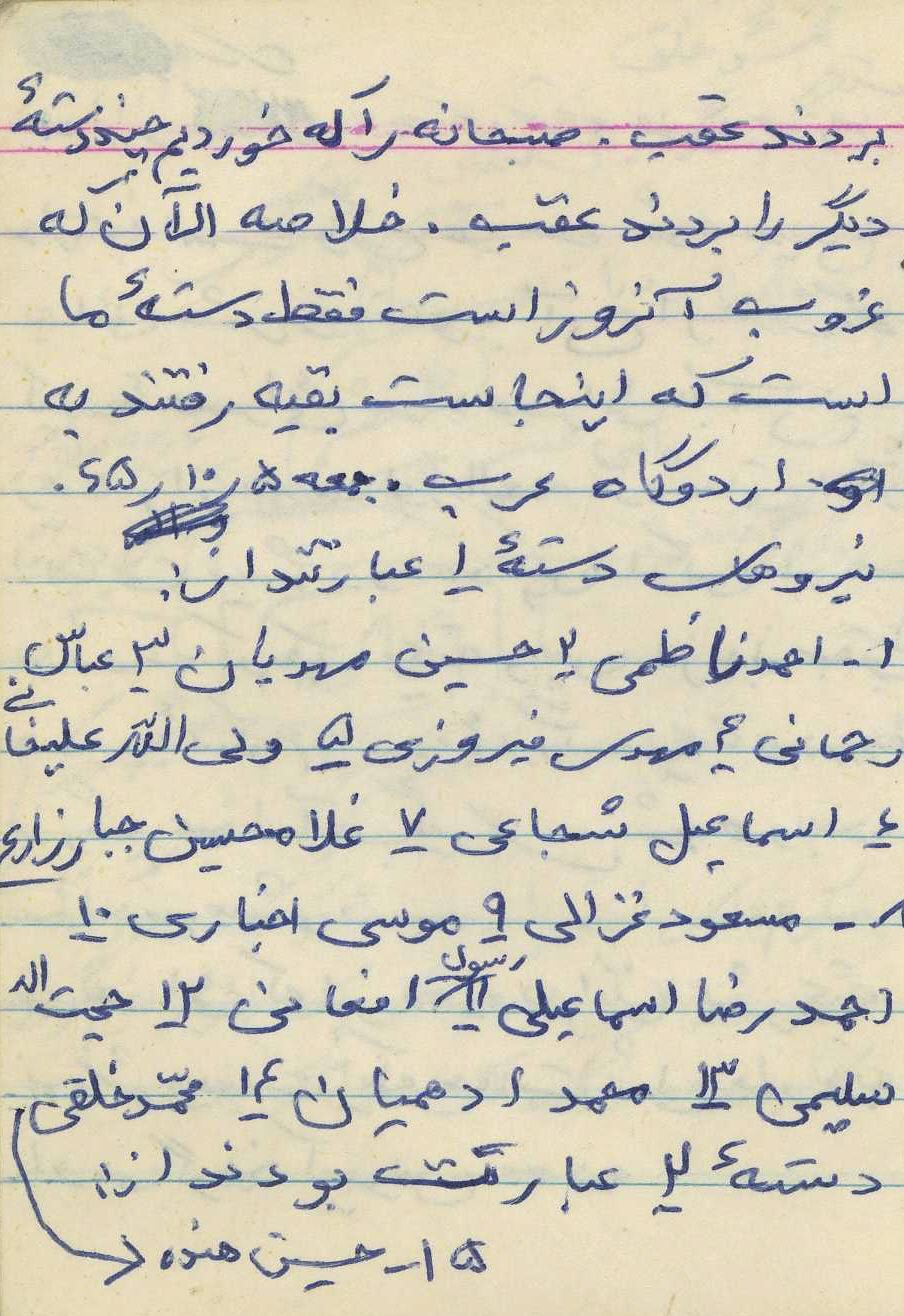 بردند عقب . صبحانه را که خوردیم چند دستهٔ
دیگر را بردند عقب . خلاصه الآن که
غروب آنروز است فقط دستهٔ ما
است که اینجاست بقیه رفتند به
اردوگاه عرب . جمعه ۵ر۱۰ر۶۵ .
نیروهای دستهٔ ۱ عبارتند از:
۱- احمد ناظمی ۲ حسین مهدیان ۳ عباس
رحمانی ۴ مهدی فیروزی ۵ ولی الله علیخانی
۶ اسماعیل شجاعی ۷ غلامحسین جبارزارع
۸- مسعود غزالی ۹ موسی اخباری ۱۰
احمد رضا اسماعیلی ۱۱ رسول ۱۲ حجت اله
سلیمی ۱۳ محمد ادهمیان ۱۴ محمد خلقی
دستهٔ ۲ عبارت بودند از:
۱۵- حسین